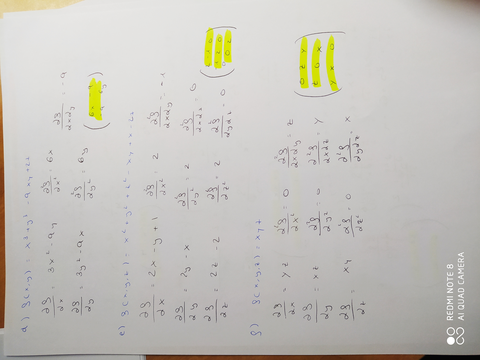 d) g(x,y) = x³+y³-9xy+27
∂g/∂x = 3x²-9y ∂²g/∂x² = 6x ∂²g/∂x∂y = -9
∂g/∂y = 3y²-9x ∂²g/∂y² = 6y
(6x -9
-9 6y)
e) g(x,y,z) = x²+y²+z²-xy+x-2z
∂g/∂x = 2x-y+1 ∂²g/∂x² = 2 ∂²g/∂x∂y = -1
∂g/∂y = 2y-x ∂²g/∂y² = 2 ∂²g/∂x∂z = 0
∂g/∂z = 2z-2 ∂²g/∂z² = 2 ∂²g/∂y∂z = 0
f) g(x,y,z) = xyz
∂g/∂x = yz ∂²g/∂x² = 0 ∂²g/∂x∂y = z
∂g/∂y = xz ∂²g/∂y² = 0 ∂²g/∂x∂z = y
∂g/∂z = xy ∂²g/∂z² = 0 ∂²g/∂y∂z = x
(0 z y
z 0 x
y x 0)
REDMI NOTE 8
AI QUAD CAMERA